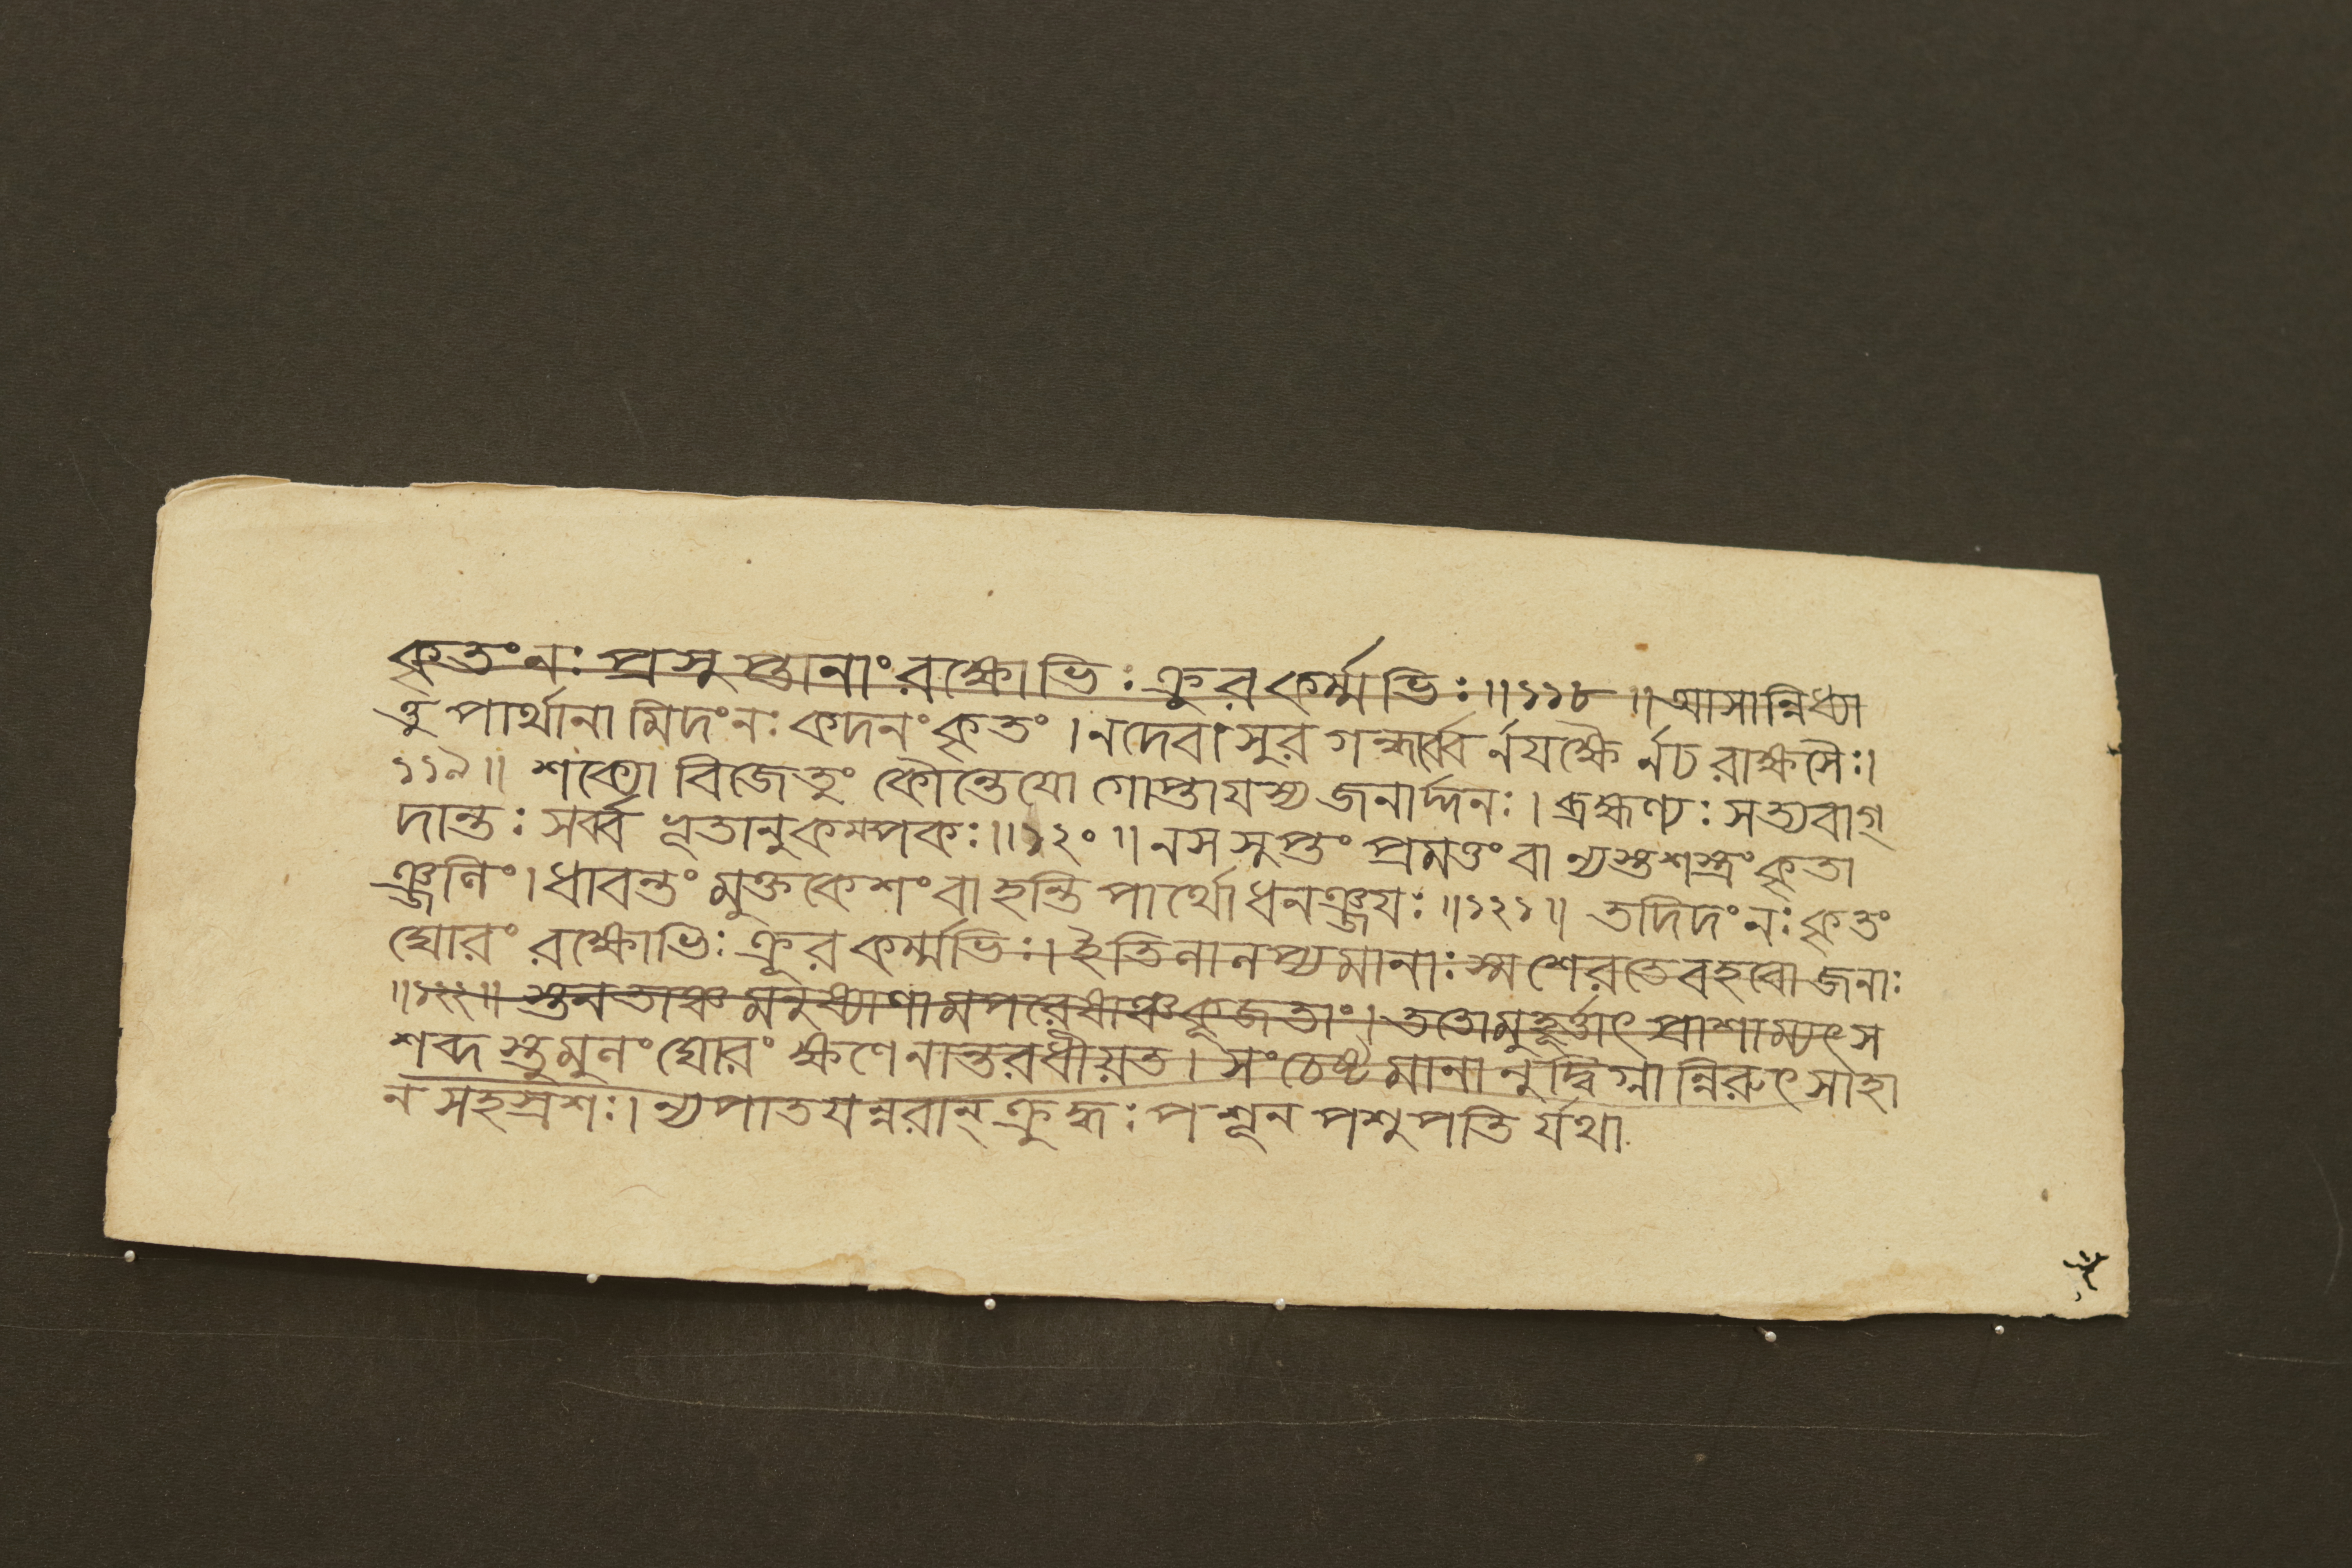 কৃতং নঃ প্রসুপ্তানাং রক্ষোভিঃ ক্রুরকর্ম্মভিঃ ॥ ১১৮ ॥ আসান্নিধ্যা
ত্তু পার্থানামিদং নঃ কদনং কৃতং । ন দেবাসুরগন্ধর্ব্বৈর্নযক্ষৈর্নচ রাক্ষসৈঃ ।
১১৯ ॥ শক্যো বিজেতুং কৌন্তেযো গোপ্তা যস্য জনার্দ্দনঃ । ব্রহ্মণ্যঃ সত্যবাগ্
দান্তঃ সর্ব্বভূতানুকম্পকঃ ॥ ১২০ ॥ ন স সুপ্তং প্রমত্তং বা ন্যস্তশস্ত্রং কৃতা
ঞ্জলিং । ধাবন্তং মুক্তকেশং বা হন্তি পার্থো ধনঞ্জযঃ ॥ ১২১ ॥ তদিদং নঃ কৃতং
ঘোরং রক্ষোভিঃ ক্রূরকর্ম্মভিঃ । ইতি লালপ্যমানাঃ স্ম শেরতে বহবো জনাঃ
॥ ১২২ ॥ স্তনতাঞ্চ মনুষ্যাণামপরেষাঞ্চ কূজতাং । ততো মুহূর্ত্তাৎ প্রাশাম্যৎ স
শব্দস্তুমুলং ঘোরং ক্ষণেনান্তরধীয়ত । সংচেষ্টমানানুদ্বিগ্নান্নিরুৎসাহা
ন সহস্রশঃ । ন্যপাতযন্নরান্ ক্রুদ্ধঃ পশূন পশুপতির্যথা